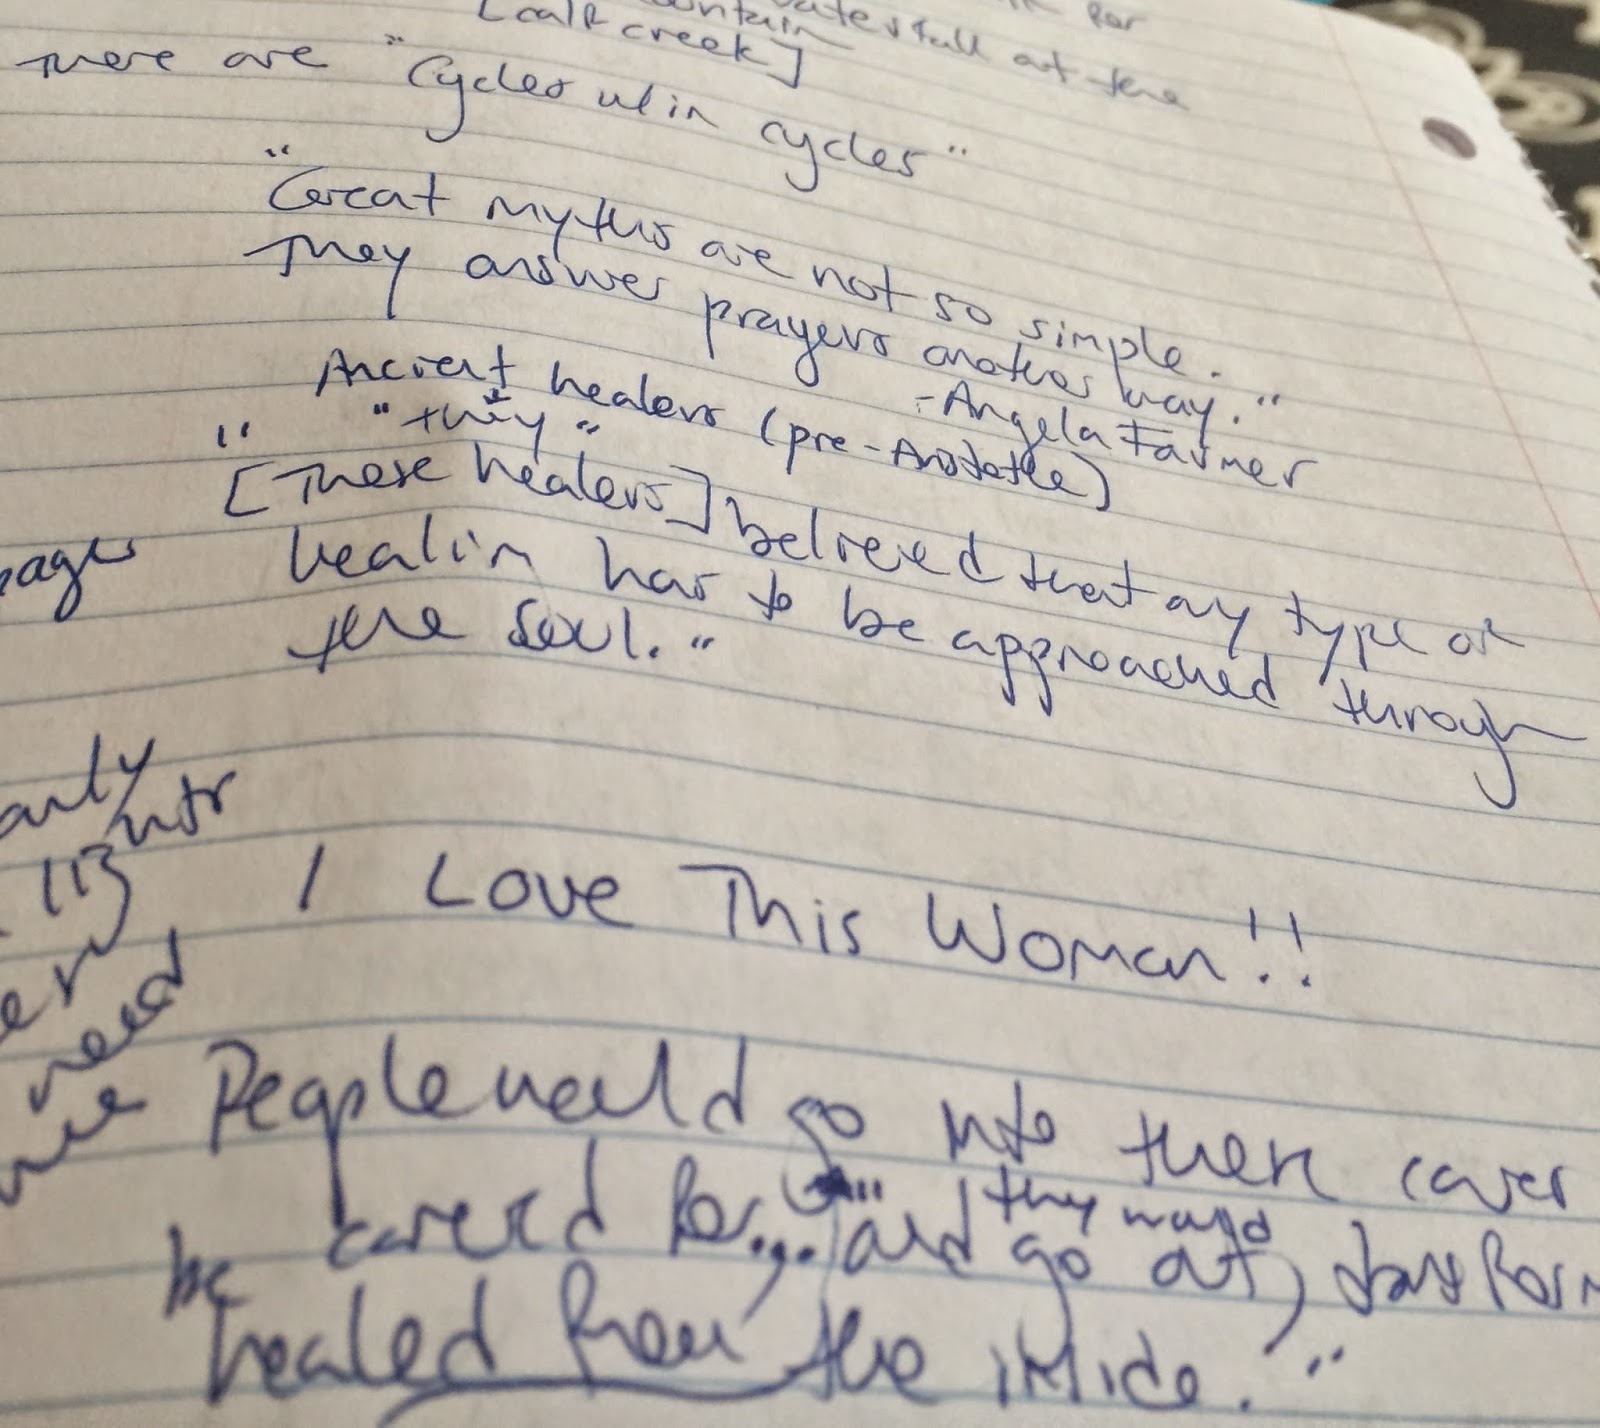 for
waterfall at the
creek]
There are "Cycles w/in cycles"
"Great myths are not so simple.
They answer prayers another way."
- Angela Farmer
Ancient healers (pre-Aristotle)
"they"
"[These healers] believed that any type of
healin has to be approached through
the soul."
I Love This Woman!!
need
People would go into there caves
be cared for... and they would go out, transform
healed from the inside."